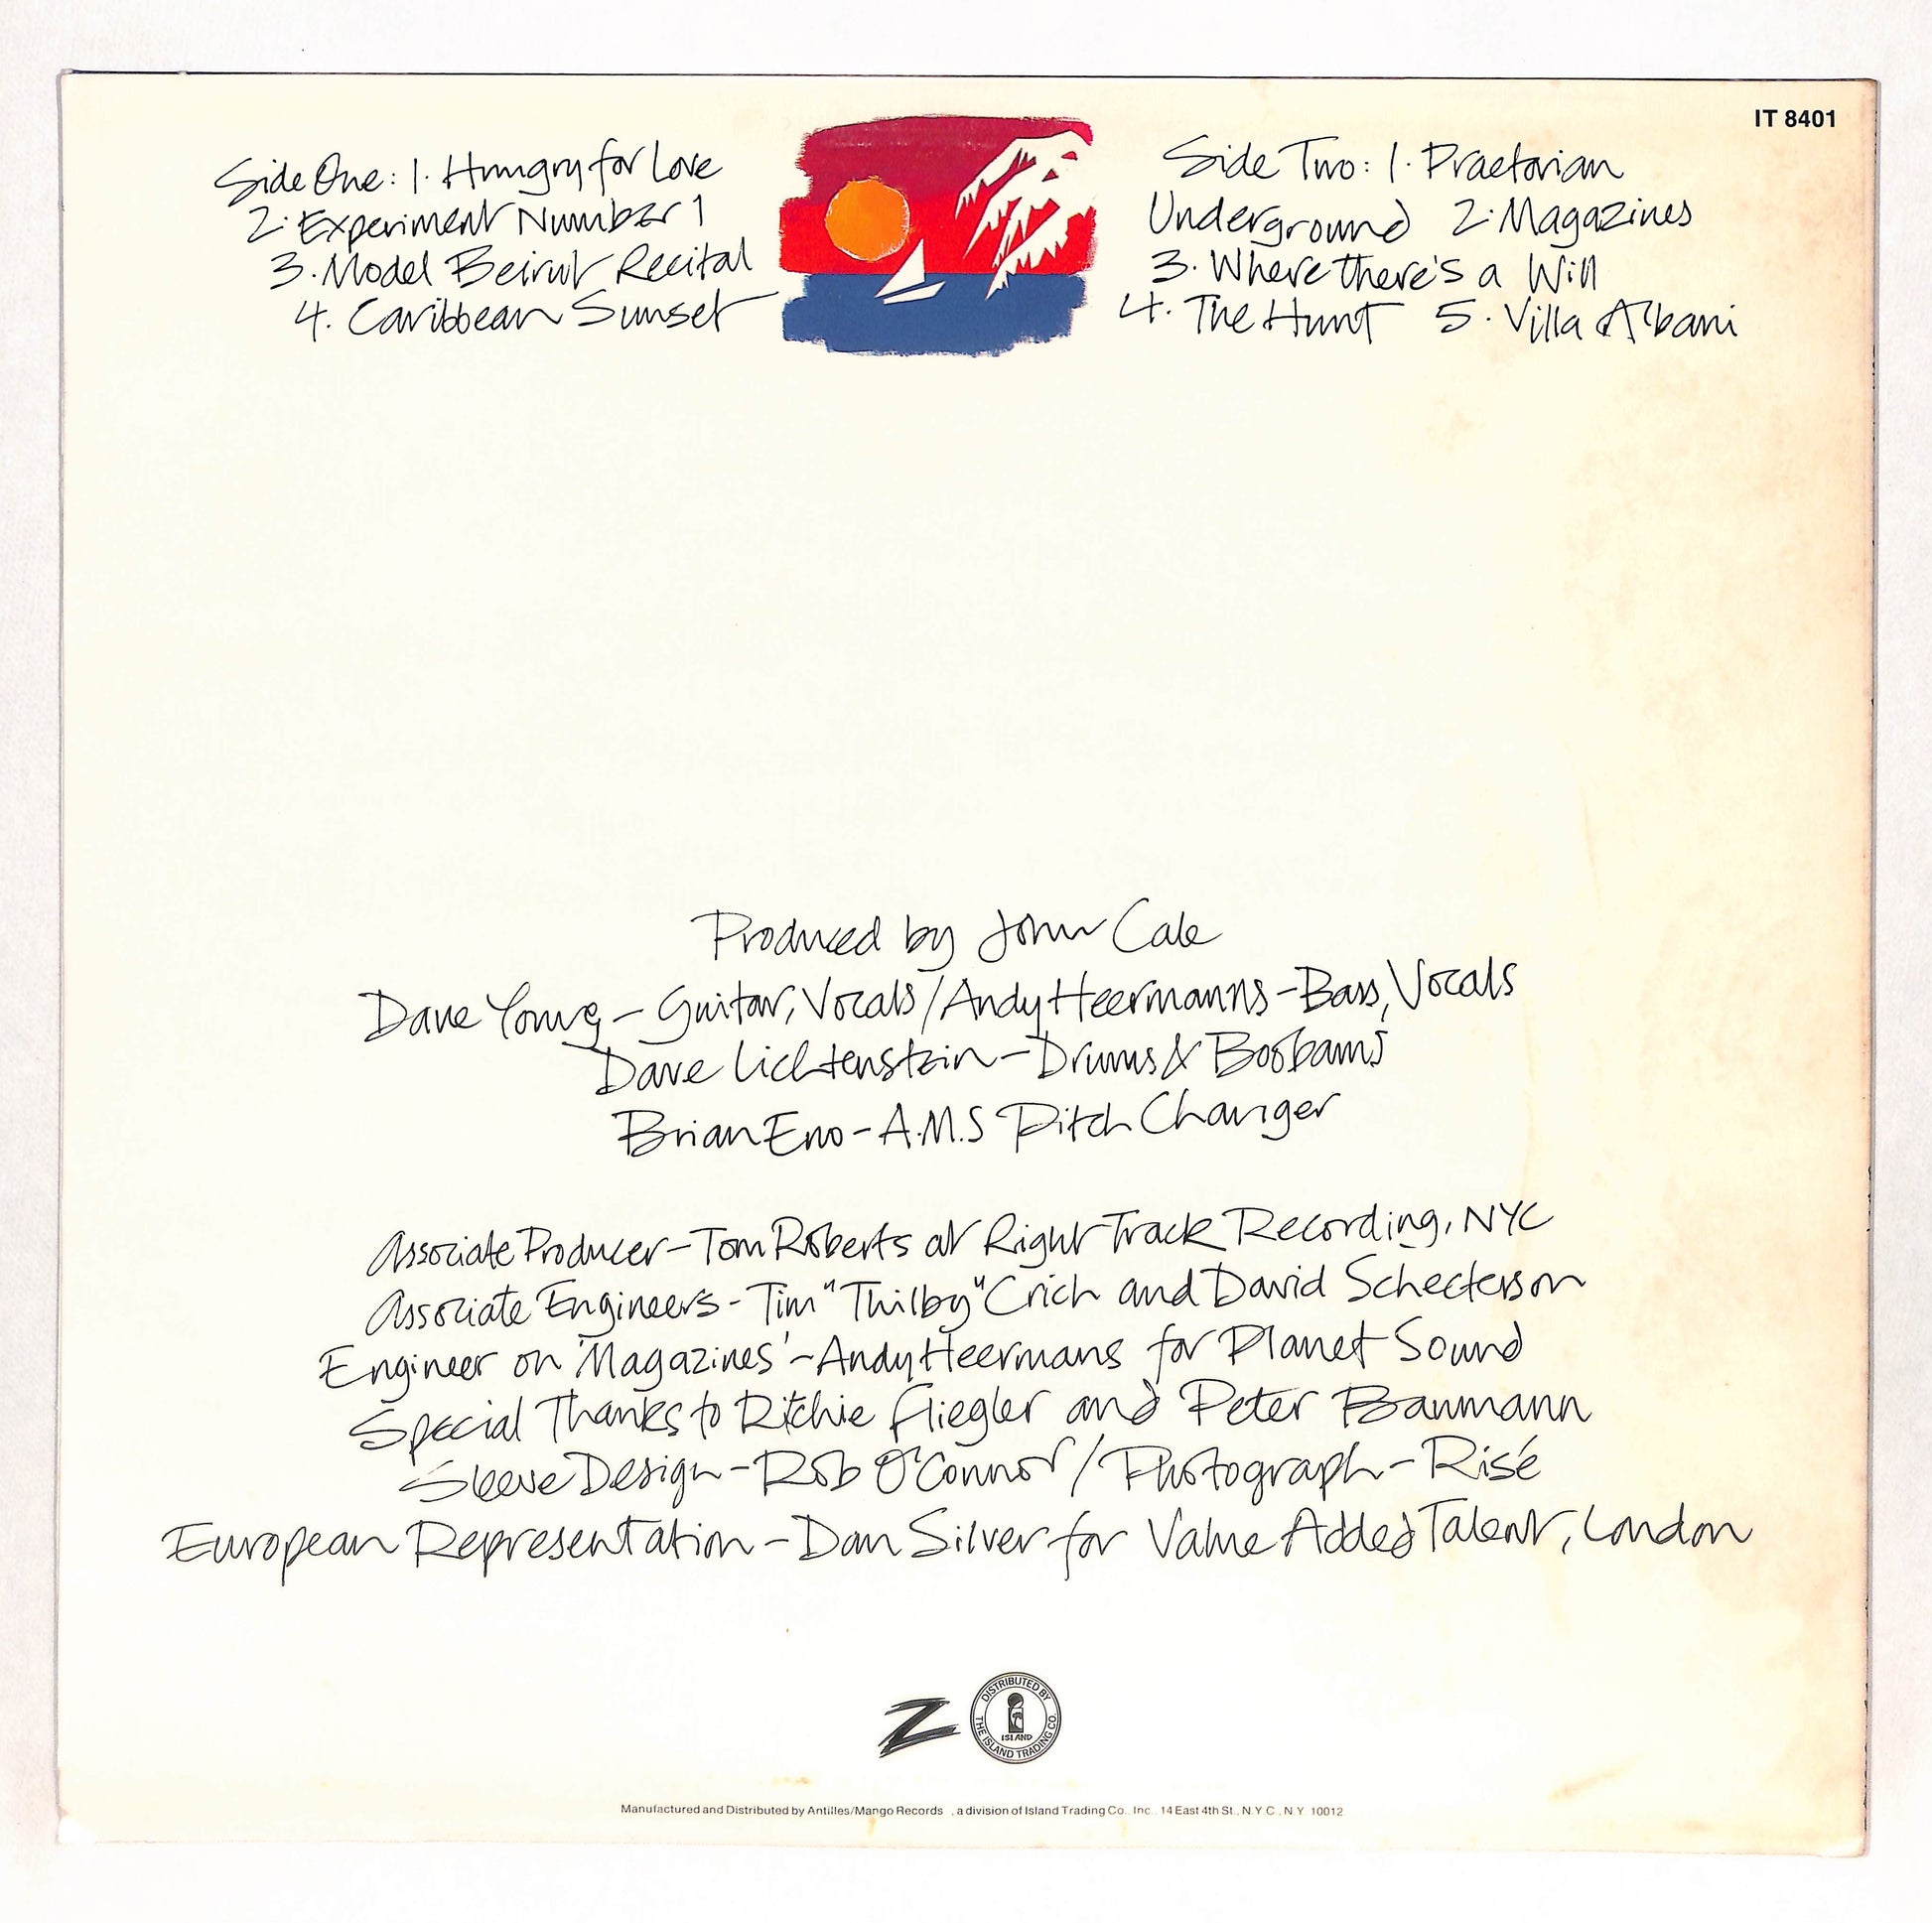 IT 8401
Side One: 1. Hungry for Love
2. Experiment Number 1
3. Model Beirut Recital
4. Caribbean Sunset
Side Two: 1. Praetorian
Underground 2. Magazines
3. Where there's a Will
4. The Hunt 5. Villa Albani
Produced by John Cale
Dave Young – Guitar, Vocals / Andy Heermanns – Bass, Vocals
Dave Lichtenstein – Drums & Boobams
Brian Eno – A.M.S Pitch Changer
Associate Producer – Tom Roberts at Right Track Recording, NYC
Associate Engineers – Tim "Thilby" Crich and David Schecterson
Engineer on 'Magazines' – Andy Heermans for Planet Sound
Special Thanks to Ritchie Fliegler and Peter Baumann
Sleeve Design – Rob O'Connor / Photograph – Risé
European Representation – Dan Silver for Value Added Talent, London
Z
DISTRIBUTED BY
THE ISLAND TRADING CO.
ISLAND
Manufactured and Distributed by Antilles/Mango Records , a division of Island Trading Co., Inc., 14 East 4th St., N.Y.C., N.Y. 10012